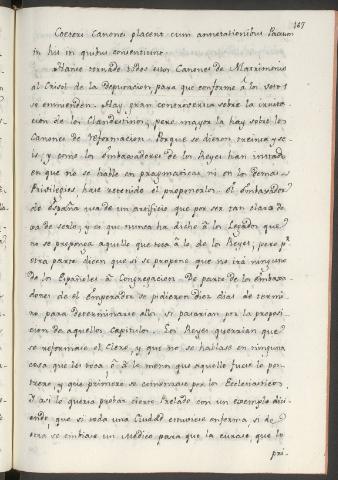 147
Coeteri Canones placent cum annotationibus Patrum
in his in quibus consentiunt.
Hanse tornado todos estos Canones de Matrimonio
al Crisol de la deputacion, para que conforme à los votos
se enmienden. Hay gran controversia sobre la irritacion
de los Clandestinos; pero mayor la hay sobre los
Canones de reformacion. Porque se dieron treinta y se-
is, y como los Embaxadores de los Reyes han instado
en que no se hable en pragmaticas, ni en los demas
Privilegios, hase retenido el proponerlos. el Embaxador
de España usa de un artificio que por ser tan claro de-
xa de serlo; y es que nunca ha dicho à los Legados que
no se proponga aquello que toca à lo de los Reyes; pero pr
otra parte dicen que si se propone que no irá ninguno
de los Españoles à Congregacion. De parte de los Embaxa-
dores de el Emperador se pidieron diez dias de termi-
no para determinarse ellos, si pasarian por la proposi-
cion de aquellos capitulos. Los Reyes querrian que
se reformase el Clero, y que no se hablase en ninguna
cosa que les toca, ò à lo menos que aquello fuese lo pos-
trero, y que primero se comenzase por los Eclesiasticos.
Y asi lo queria probar cierto Prelado con un exemplo dici-
endo, que si toda una Ciudad estuviese enferma, si de
otra se embiase un Medico para que la curase, que lo
pri-